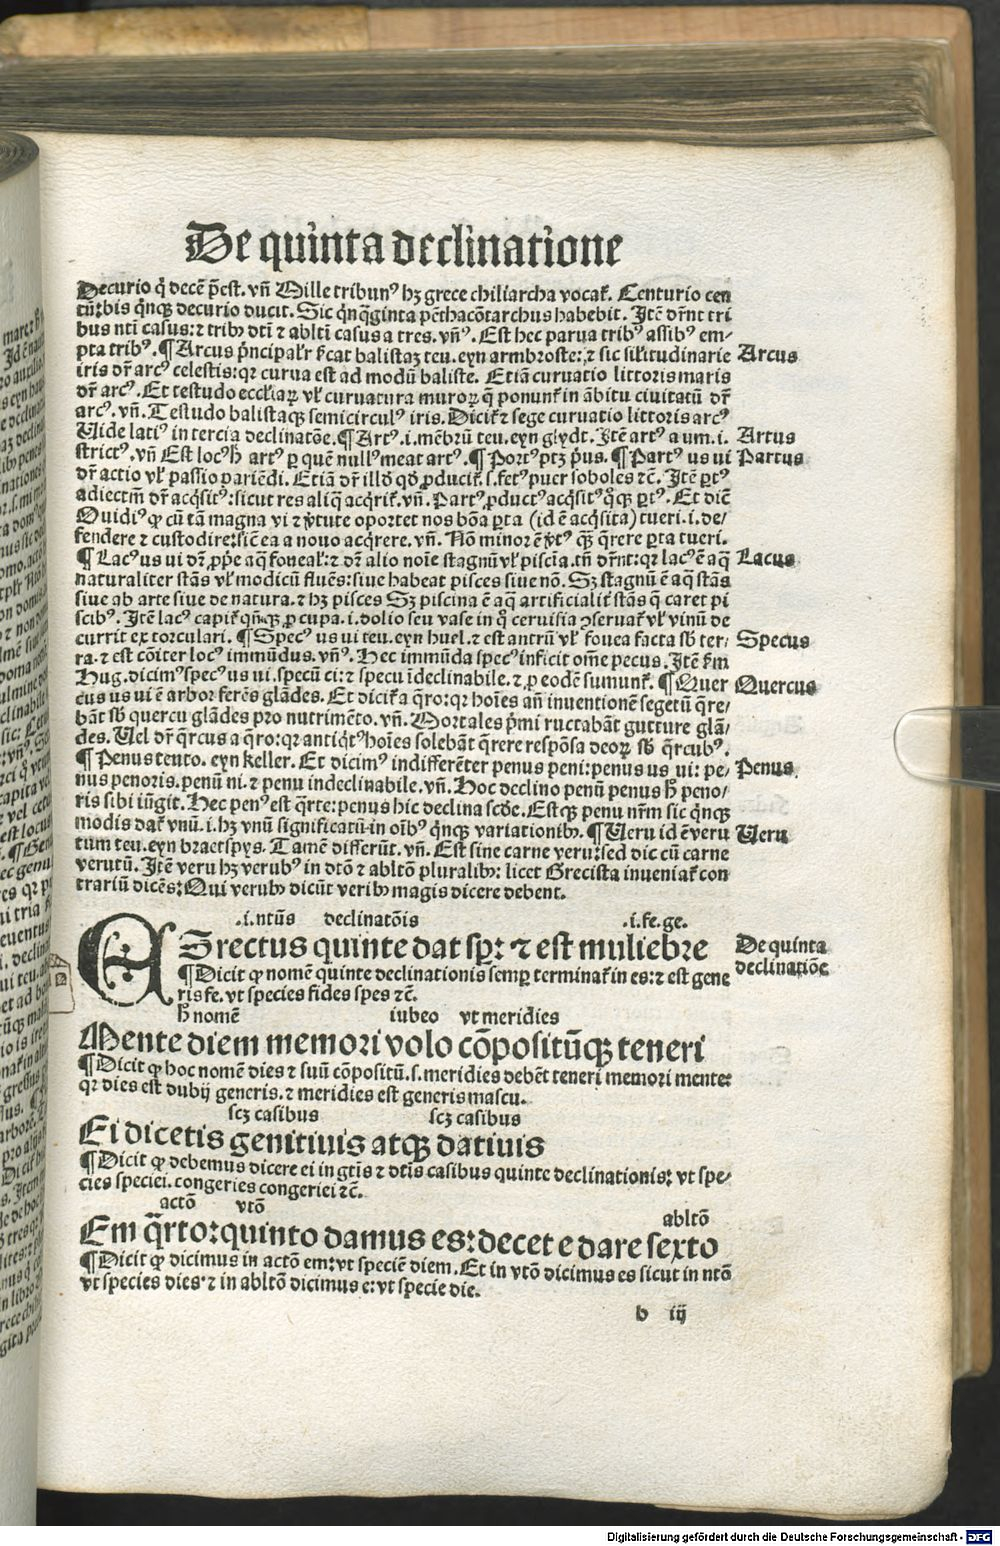 De quinta declinatione
Decurio q̇ decē p̄est. vñ Mille tribunꝰ hꝫ grece chiliarcha vocat̄. Centurio cen
tū: bis q̇nqꝫ decurio ducit. Sic q̇nq̇ginta pētacōtarchus habebit. Itē dr̄nt tri
bus nti casus: ⁊ tribꝫ dti ⁊ ablti casus a tres. vñꝰ. Est hec parua tribꝰ assibꝰ em⸗
pta tribꝰ. ¶ Arcus p̄ncipalr̄ s̄cat balistaꝫ teu. eyn armbroste: ⁊ sic sil̄itudinarie
Arcus
iris dr̄ arcꝰ celestis: qꝛ curua est ad modū baliste. Etiā curuatio littoris maris
dr̄ arcꝰ. Et testudo eccl̄iaꝝ vl̄ curuatura muroꝝ q̄ ponunt̄ in ābitu ciuitatū dr̄
arcꝰ. vñ. Testudo balistaqꝫ semicirculꝰ iris. Dicit̄ ⁊ sege curuatio littoris arcꝰ
Vide latiꝰ in tercia declinatōe. ¶ Artꝰ .i. mēbrū teu. eyn glydt. Itē artꝰ a um .i.
Artus
strictꝰ. vñ Est locꝰ ħ artꝰ ꝑ quē nullꝰ meat artꝰ. ¶ Portꝰ ptꝫ p̄us. ¶ Partꝰ us ui
Partus
dr̄ actio vl̄ passio pariēdi. Etiā dr̄ illd̄ qd̄ ꝓducit̄ .s. fetꝰ puer soboles ⁊c̄. Itē ꝑtꝰ
adiectm̄ dr̄ acq̇sitꝰ: sicut res aliq̄ acq̇rit̄. vñ. Partꝰ ꝓductꝰ acq̇sitꝰ q̇qꝫ ꝑtꝰ. Et dicī
Ouidiꝰ ꝙ cū tā magna vi ⁊ v̄tute oportet nos bōa ꝑta (id ē acq̇sita) tueri .i. de⸗
fendere ⁊ custodire: sic ē ea a nouo acq̇rere. vñ. Nō minor ē v̄tꝰ qꝫ q̇rere ꝑta tueri.
¶ Lacꝰ us ui dr̄ ꝓpe aq̄ foueal̄: ⁊ dr̄ alio noīe stagnū vl̄ piscia. tn̄ dr̄nt: qꝛ lacꝰ ē aq̄
Lacus
naturaliter stās vl̄ modicū fluēs: siue habeat pisces siue nō. Sꝫ stagnū ē aq̄ stās
siue ab arte siue de natura. ⁊ hꝫ pisces Sꝫ piscina ē aq̄ artificialit̄ stās q̄ caret pi
scibꝰ. Itē lacꝰ capit̄ qn̄qꝫ ꝓ cupa .i. dolio seu vase in q̇ ceruisia ꝯseruat̄ vl̄ vinū de
currit ex torculari. ¶ Specꝰ us ui teu. eyn huel. ⁊ est antrū vl̄ fouea facta sb̄ ter⸗
Specus
ra. ⁊ est cōiter locꝰ immūdus. vñꝰ. Hec immūda specꝰ inficit om̄e pecus. Itē s̄m
Hug. dicimꝰ specꝰ us ui. specū ci: ⁊ specu īdeclinabile. ⁊ ꝓ eodē sumunt̄. ¶ Quer
Quercus
cus us ui ē arbor ferēs glādes. Et dicit̄ a q̄ro: qꝛ hoīes añ inuentionē segetū q̄re⸗
bāt sb̄ quercu glādes pro nutrimēto. vñ. Mortales p̄mi ructabāt gutture glā⸗
des. Vel dr̄ q̄rcus a q̄ro: qꝛ antiq̇tꝰ hoīes solebāt q̄rere respōsa deoꝝ sb̄ q̄rcubꝰ.
¶ Penus teuto. eyn keller. Et dicimꝰ indifferēter penus peni: penus us ui: pe⸗
Penus
nus penoris. penū ni. ⁊ penu indeclinabile. vñ. Hoc declino penū penus ħ peno⸗
ris sibi iūgit. Hec penꝰ est q̄rte: penus hic declina scd̄e. Estqꝫ penu nr̄m sic q̇nqꝫ
modis dat̄ vnū .i. hꝫ vnū significatū in oībꝰ q̇nqꝫ variationibꝫ. ¶ Veru id ē veru
Veru
tum teu. eyn braetspys. Tamē differūt. vñ. Est sine carne veru: sed dic cū carne
verutū. Itē veru hꝫ verubꝰ in dtō ⁊ abltō pluralibꝫ: licet Grecista inueniat̄ con
trariū dicēs: Qui verubꝫ dicūt veribꝫ magis dicere debent.
.i. ntūs declinatōis .i. fe. ge.
AS rectus quinte dat spꝫ: ⁊ est muliebre
De quinta
declinatiōe
¶ Dicit ꝙ nomē quinte declinationis semꝑ terminat̄ in es: ⁊ est gene
ris fe. vt species fides spes ⁊c̄.
ħ nomē iubeo vt meridies
Mente diem memori volo cōpositūqꝫ teneri
¶ Dicit ꝙ hoc nomē dies ⁊ suū cōpositū .s. meridies debēt teneri memori mente:
qꝛ dies est dubij generis. ⁊ meridies est generis mascu.
scꝫ casibus scꝫ casibus
Ei dicetis genitiuis atqꝫ datiuis
¶ Dicit ꝙ debemus dicere ei in gtīs ⁊ dtīs casibus quinte declinationis: vt spe⸗
cies speciei. congeries congeriei ⁊c̄.
actō vtō abltō
Em q̄rto: quinto damus es: decet e dare sexto
¶ Dicit ꝙ dicimus in actō em: vt speciē diem. Et in vtō dicimus es sicut in ntō
vt species dies. ⁊ in abltō dicimus e: vt specie die.
b iij
Digitalisierung gefördert durch die Deutsche Forschungsgemeinschaft - DFG